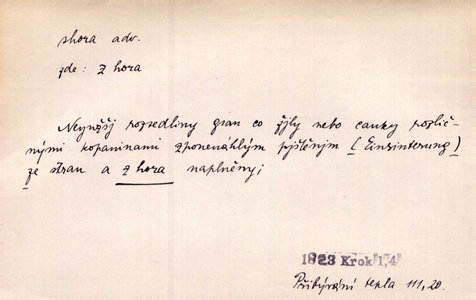 shora adv.
zde: z hora
Neyužšj rozsedliny gsau co žjly nebo cauky rozlič-
nými kopaninami zponenáhlým pjštěným (Einsinterung)
ze stran a z hora naplněny;
1823 Krok 1,4
Přibývání tepla 111, 20.